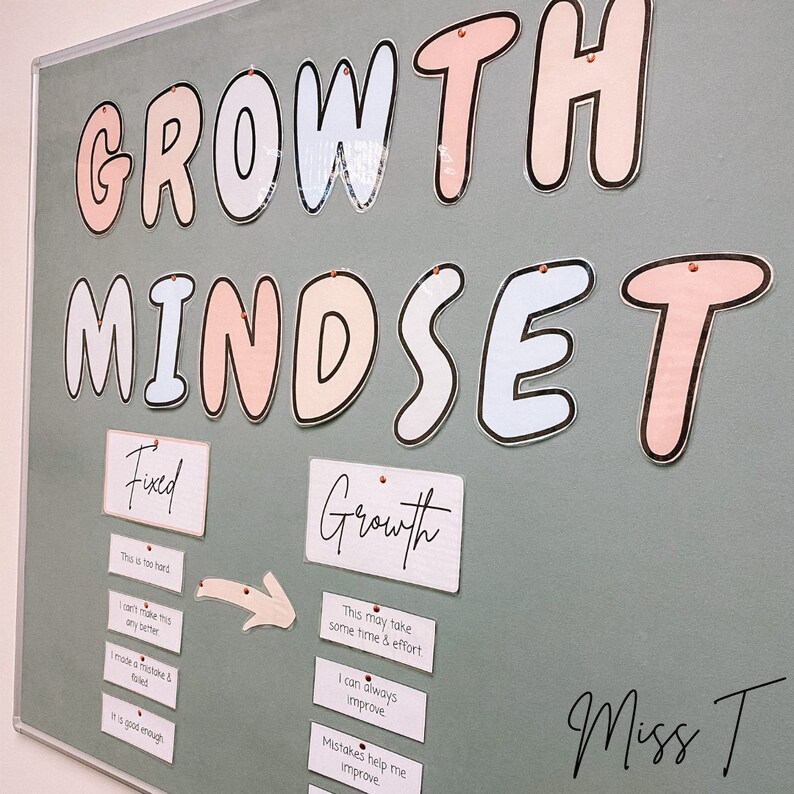 GROWTH
MINDSET
Fixed
This is too hard.
I can't make this
any better.
I made a mistake &
failed.
It is good enough.
Growth
This may take
some time & effort.
I can always
improve.
Mistakes help me
improve.
Miss T